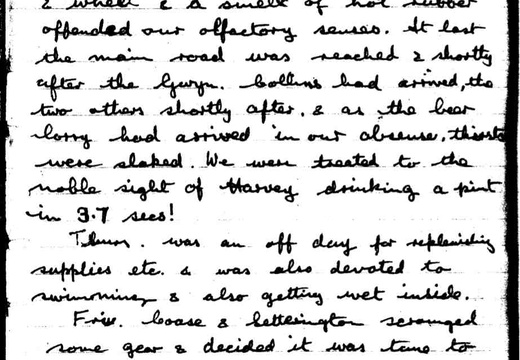 & wheel & a smell of hot rubber
offended our olfactory senses. At last
the main road was reached & shortly
after the Gwyn. Collins had arrived, the
two others shortly after, & as the beer
lorry had arrived in our absense, thirsts
were slaked. We were treated to the
noble sight of Harvey drinking a pint
in 3.7 secs!
Thurs. was an off day for replenishing
supplies etc. & was also devoted to
swimming & also getting wet inside.
Fri. Coase & Ketteringham scrounged
some gear & decided it was time to